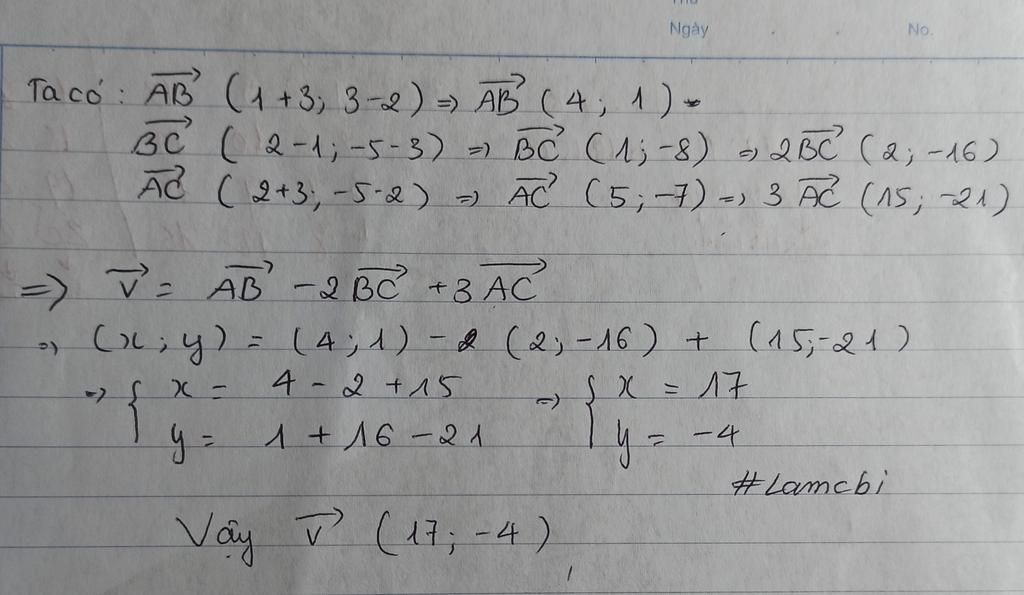 Thứ
Ngày No.
Ta có: AB→ (1+3; 3-2) => AB→ (4; 1)
BC→ (2-1; -5-3) => BC→ (1; -8) => 2BC→ (2; -16)
AC→ (2+3; -5-2) => AC→ (5; -7) => 3 AC→ (15; -21)
=> v→ = AB→ -2 BC→ +3 AC→
=> (x; y) = (4; 1) - (2; -16) + (15; -21)
=> { x = 4 - 2 + 15 => { x = 17
y = 1 + 16 - 21 y = -4
#Lamcbi
Vậy v→ (17; -4)